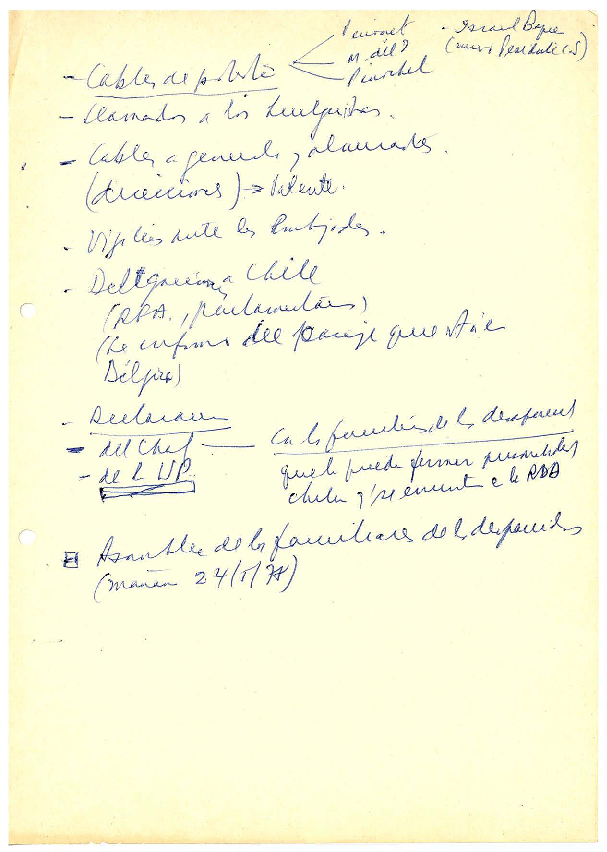 Pinochet
M. del I
Pinochet
- Israel
(nuevo Presidente CS)
- Cables de protesta
- Llamados a los huelguistas.
- Cables a generales y almirantes.
(direcciones) → Valente.
- Vigilias ante las Embajadas.
- Delegaciones a Chile
(RDA., parlamentarios)
(Se informa del pasaje que está en
Bélgica)
- Declaración
- del Chef — Con los familiares de los desaparecid
- de la UP. que la puede firmar personalidades
chilen y se encuentr e la RDA
Asamblea de los familiares de los desaparecidos
(mañana 24/5/78)